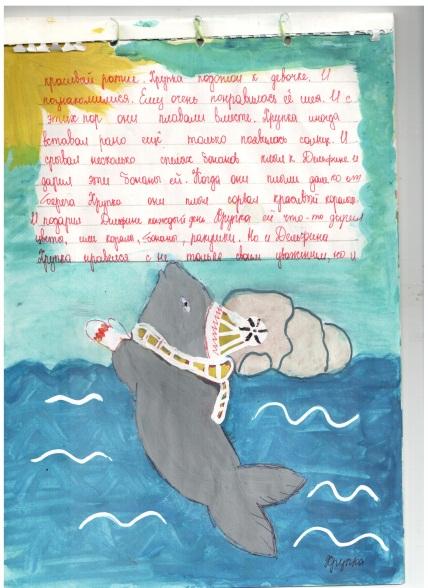 красивый ротик. Крупка подстал к девочке. И
познакомился. Ему очень понравилась её шея. И с
этих пор они плавали вместе. Крупка иногда
вставал рано ещё только появилось солнце. И
срывал несколько спелых бананов плыл к Дельфине и
дарил эти бананы ей. Когда они плыли далеко от
берега Крупка сорвал красивый коралл.
И подарил Дельфине каждый день Крупка ей что-то дарил
цветы, или коралл, бананы, ракушки. Но и Дельфина
Крупка нравился с не только своим уважением, но и
Крупка